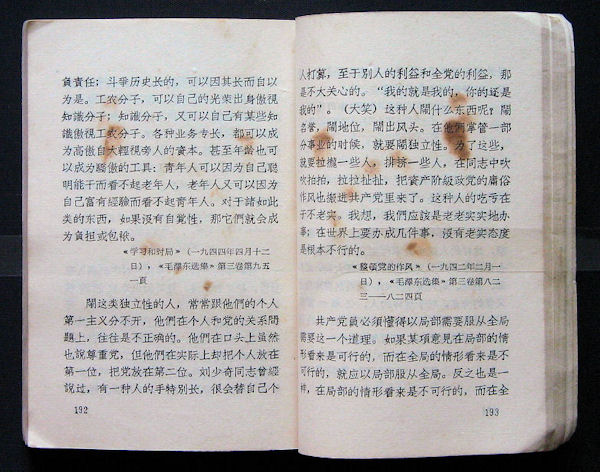 負責任；斗爭历史长的，可以因其长而自以
为是。工农分子，可以自己的光荣出身傲視
知識分子；知識分子，又可以自己有某些知
識傲視工农分子。各种业务专长，都可以成
为高傲自大輕視旁人的資本。甚至年龄也可
以成为驕傲的工具：青年人可以因为自己聪
明能干而看不起老年人，老年人又可以因为
自己富有經驗而看不起青年人。对于諸如此
类的东西，如果沒有自觉性，那它們就会成
为負担或包袱。
《学习和时局》（一九四四年四月十二
日），《毛澤东选集》第三卷第九五
一頁
鬧这类独立性的人，常常跟他們的个人
第一主义分不开，他們在个人和党的关系問
題上，往往是不正确的。他們在口头上虽然
也說尊重党，但他們在实际上却把个人放在
第一位，把党放在第二位。刘少奇同志曾經
說过，有一种人的手特別长，很会替自己个
192
人打算，至于別人的利益和全党的利益，那
是不大关心的。“我的就是我的，你的还是
我的”。（大笑）这种人鬧什么东西呢？鬧
名誉，鬧地位，鬧出风头。在他們掌管一部
分事业的时候，就要鬧独立性。为了这些，
就要拉攏一些人，排挤一些人，在同志中吹
吹拍拍，拉拉扯扯，把資产阶級政党的庸俗
作风也搬进共产党里来了。这种人的吃亏在
于不老实。我想，我們应該是老老实实地办
事；在世界上要办成几件事，沒有老实态度
是根本不行的。
《整頓党的作风》（一九四二年二月一
日），《毛澤东选集》第三卷第八二
三——八二四頁
共产党員必須懂得以局部需要服从全局
需要这一个道理。如果某項意見在局部的情
形看来是可行的，而在全局的情形看来是不
可行的，就应以局部服从全局。反之也是一
样，在局部的情形看来是不可行的，而在全
193